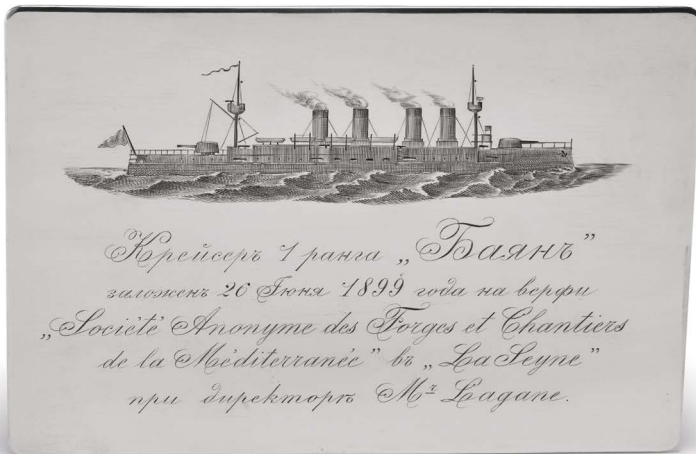 Крейсеръ 1 ранга „Баянъ”
заложенъ 26 Іюня 1899 года на верфи
„Société Anonyme des Forges et Chantiers
de la Méditerranée” въ „La Seyne”
при директорѣ Mr Lagane.